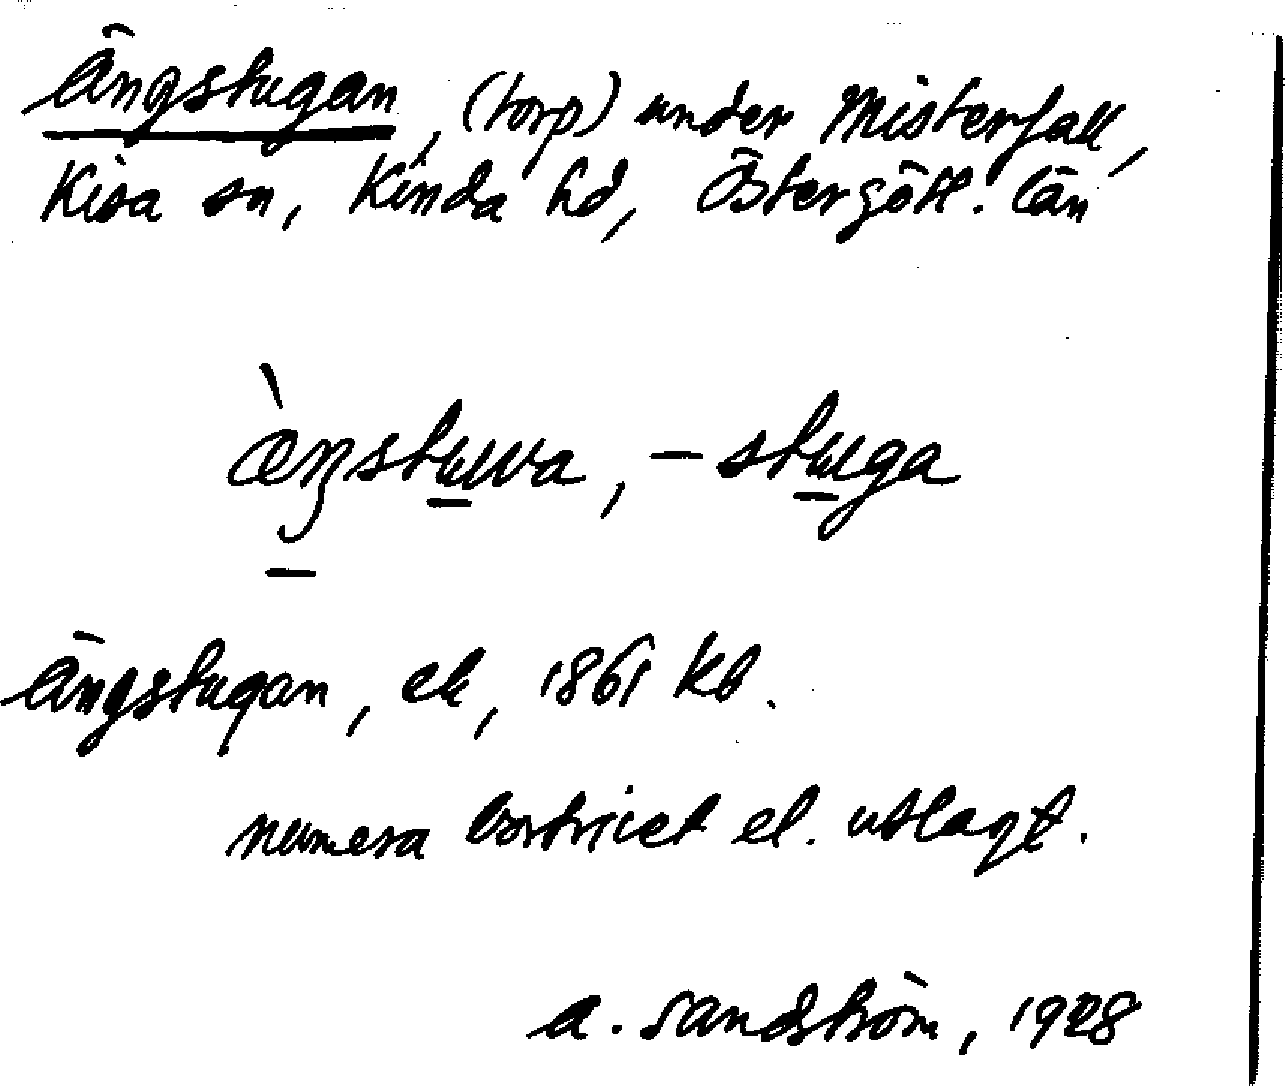 Ängstugan, (torp) under Misterfall,
Kisa sn, Kinda hd, Östergötl. län
æ̀ŋstuwa, – stuga
Ängstugan, ck, 1861 Kb.
numera bortrivet el. utlagt.
A. Sandström, 1928